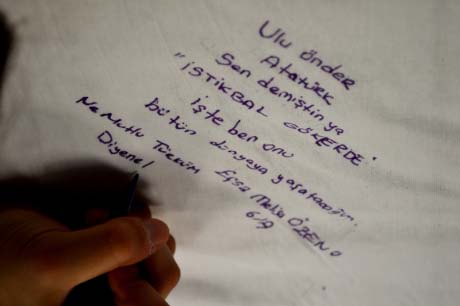 Ulu önder
Atatürk
Sen demiştin ya
"İSTİKBAL GÖKERDE"
işte ben onu
bütün dünyaya yaşatacağım.
Ne Mutlu Türküm
Diyene!
ÖZEN
6/A